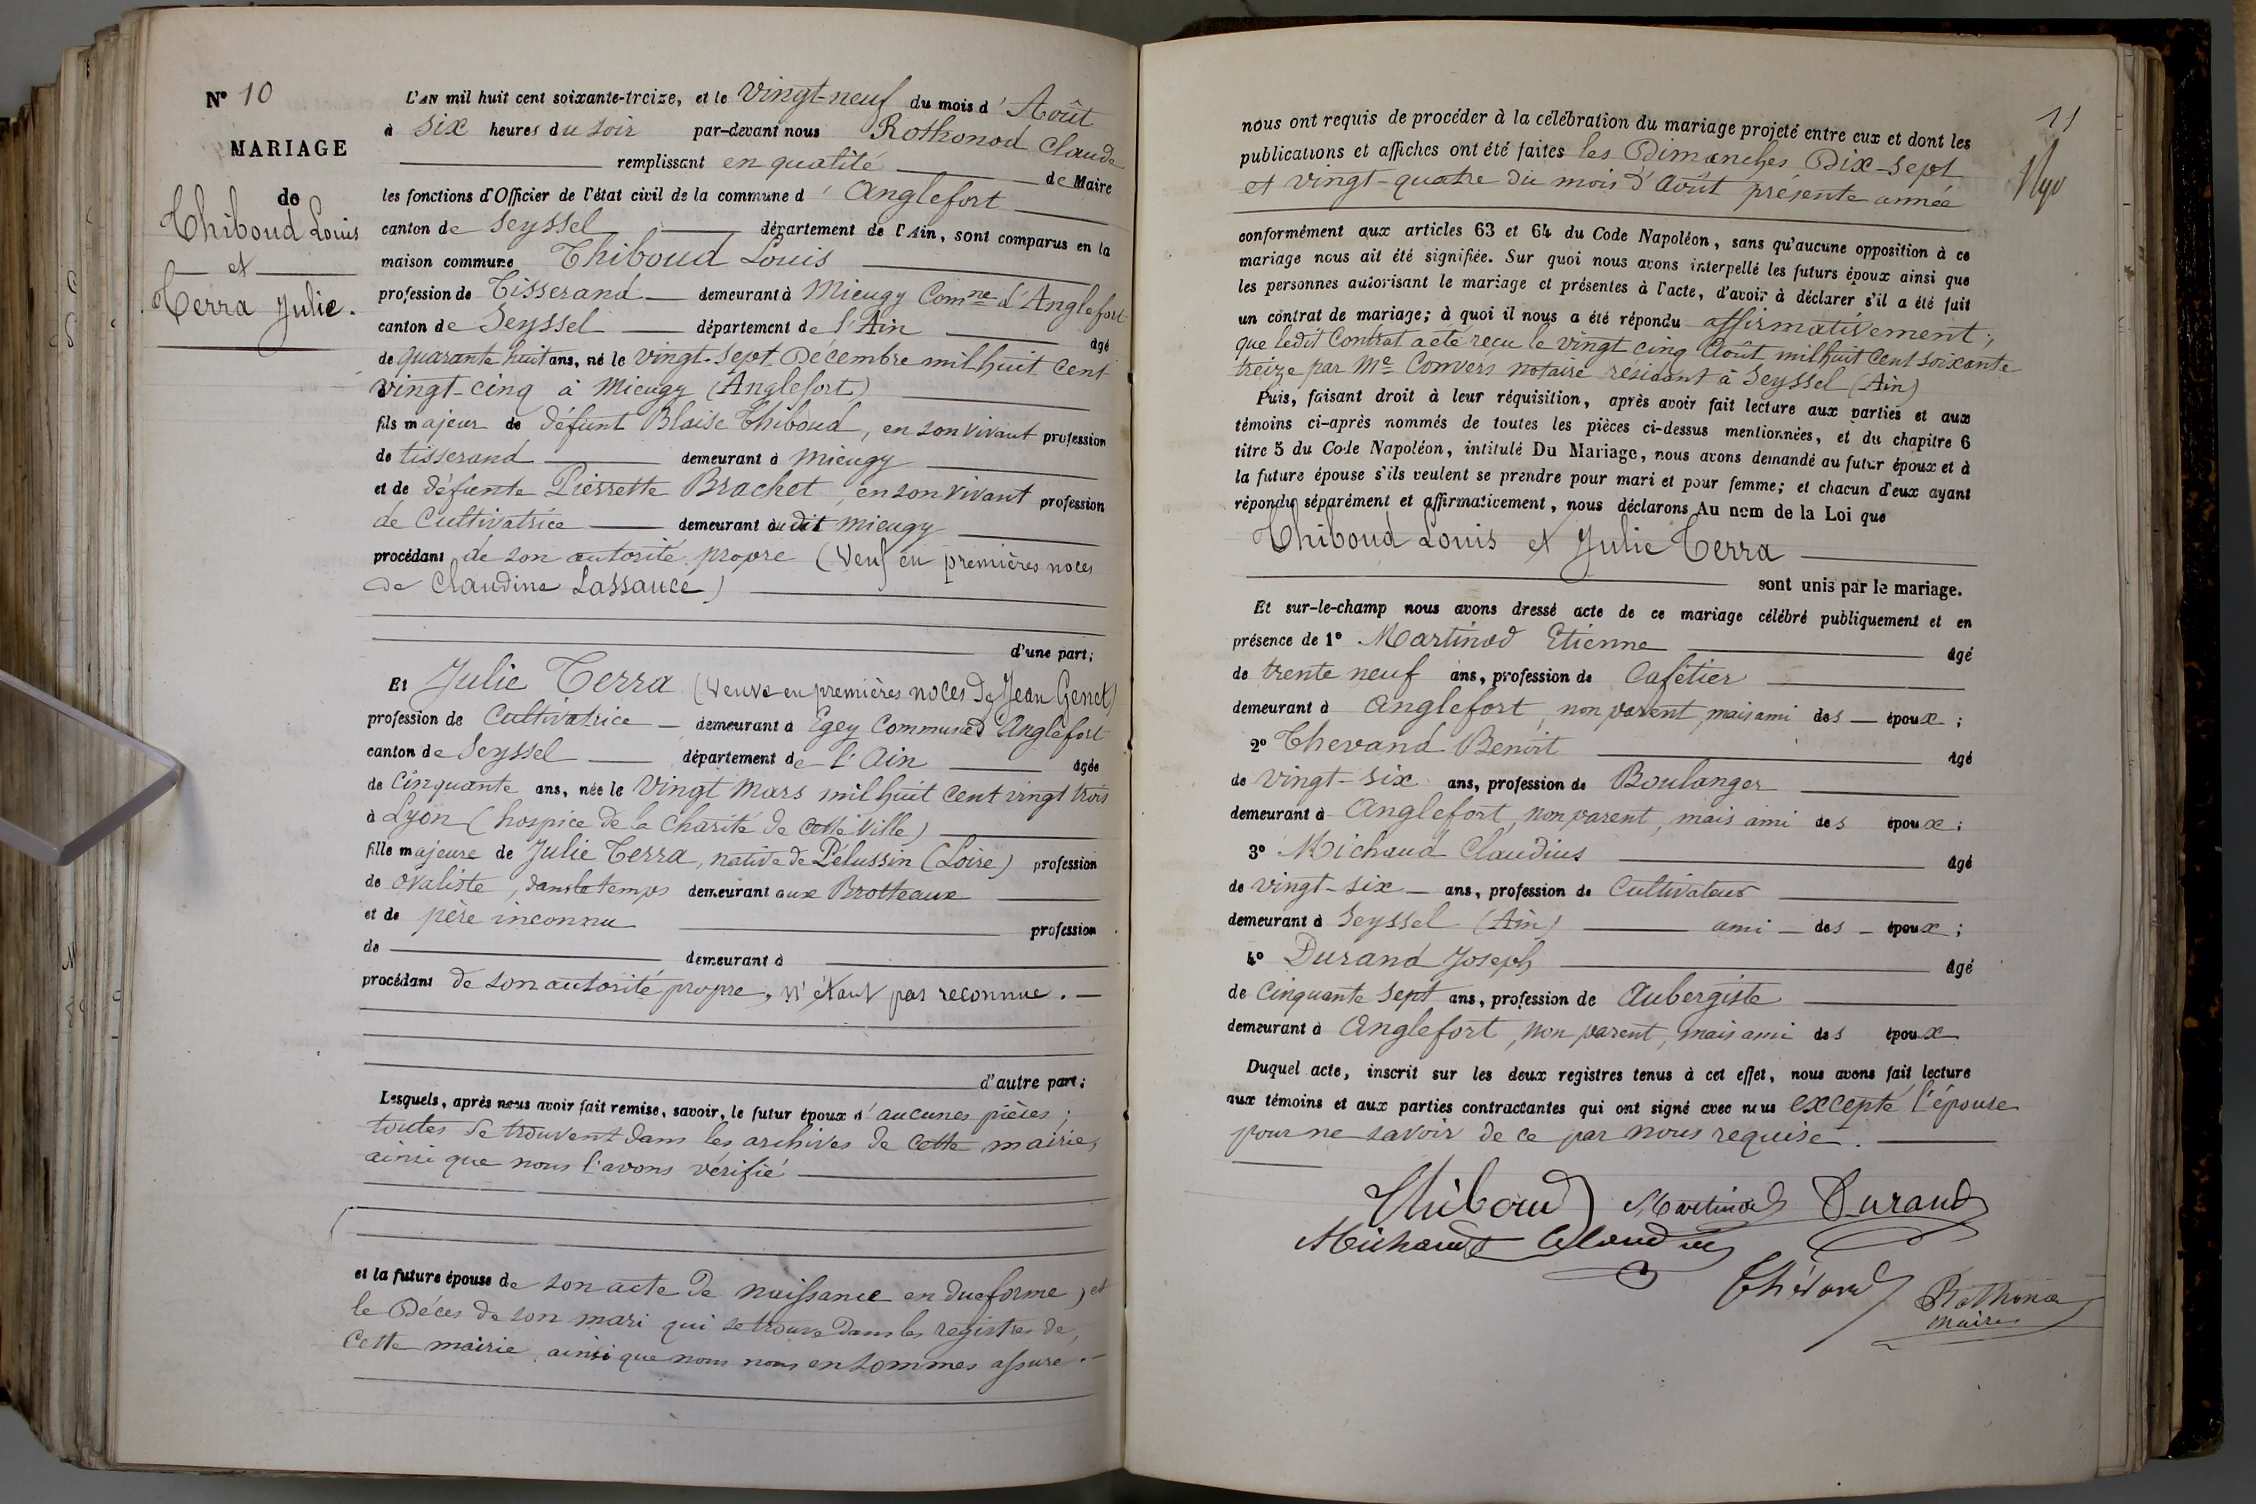 N° 10
MARIAGE
de
Thiboud Louis
et
Terra Julie.
L'AN mil huit cent soixante-treize, et le vingt-neuf du mois d'Août
à six heures du soir par-devant nous Rothonod Claude
remplissant en qualité de Maire
les fonctions d'Officier de l'état civil de la commune d'Anglefort
canton de Seyssel département de l'Ain, sont comparus en la
maison commune Thiboud Louis
profession de Tisserand demeurant à Mieugy Comne d'Anglefort
canton de Seyssel département de l'Ain âgé
de quarante huit ans, né le vingt-sept Décembre mil huit cent
vingt-cinq à Mieugy (Anglefort)
fils majeur de défunt Blaise Thiboud, en son vivant profession
de tisserand demeurant à Mieugy
et de défunte Pierrette Brachet, en son vivant profession
de Cultivatrice demeurant audit Mieugy
procédant de son autorité propre (Veuf en premières noces
de Claudine Lassauce)
d'une part;
Et Julie Terra (Veuve en premières noces de Jean Genet)
profession de Cultivatrice demeurant à Egey Commune d'Anglefort
canton de Seyssel département de l'Ain âgée
de Cinquante ans, née le Vingt Mars mil huit cent vingt trois
à Lyon (hospice de la Charité de cette Ville)
fille majeure de Julie Terra, native de Pélussin (Loire) profession
de ovaliste, dans le temps demeurant aux Brotteaux
et de père inconnu profession
de demeurant à
procédant de son autorité propre, n'étant pas reconnue.
d'autre part;
Lesquels, après nous avoir fait remise, savoir, le futur époux d'aucunes pièces;
toutes se trouvent dans les archives de cette mairie,
ainsi que nous l'avons vérifié
et la future épouse de son acte de naissance en due forme, et
le Décès de son mari qui se trouve dans les registres de
cette mairie, ainsi que nous nous en sommes assuré.
11
nous ont requis de procéder à la célébration du mariage projeté entre eux et dont les
publications et affiches ont été faites les Dimanches Dix-Sept
et vingt-quatre du mois d'Août présente année
conformément aux articles 63 et 64 du Code Napoléon, sans qu'aucune opposition à ce
mariage nous ait été signifiée. Sur quoi nous avons interpellé les futurs époux ainsi que
les personnes autorisant le mariage et présentes à l'acte, d'avoir à déclarer s'il a été fait
un contrat de mariage; à quoi il nous a été répondu affirmativement;
que ledit Contrat a été reçu le vingt cinq Août mil huit cent soixante
treize par Me Convers notaire résidant à Seyssel (Ain)
Puis, faisant droit à leur réquisition, après avoir fait lecture aux parties et aux
témoins ci-après nommés de toutes les pièces ci-dessus mentionnées, et du chapitre 6
titre 5 du Code Napoléon, intitulé Du Mariage, nous avons demandé au futur époux et à
la future épouse s'ils veulent se prendre pour mari et pour femme; et chacun d'eux ayant
répondu séparément et affirmativement, nous déclarons Au nom de la Loi que
Thiboud Louis et Julie Terra
sont unis par le mariage.
Et sur-le-champ nous avons dressé acte de ce mariage célébré publiquement et en
présence de 1° Martinod Etienne âgé
de trente neuf ans, profession de Cafetier
demeurant à Anglefort, non parent, mais ami des époux;
2° Thevand Benoit âgé
de vingt-six ans, profession de Boulanger
demeurant à Anglefort, non parent, mais ami des époux;
3° Michaud Claudius âgé
de vingt-six ans, profession de Cultivateur
demeurant à Seyssel (Ain) ami des époux;
4° Durand Joseph âgé
de Cinquante sept ans, profession de Aubergiste
demeurant à Anglefort, non parent, mais ami des époux
Duquel acte, inscrit sur les deux registres tenus à cet effet, nous avons fait lecture
aux témoins et aux parties contractantes qui ont signé avec nous excepté l'épouse
pour ne savoir de ce par nous requise.
Thiboud Martinod Durand
Michaud Claudius
Thévand Rothonod
maire